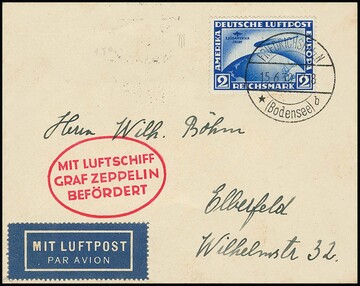 DEUTSCHE LUFTPOST
AMERIKA
EUROPA
2 REICHSMARK 2
FRIEDRICHSHAFEN
15.6.
★ (Bodensee) d
Herrn Wilh. Böhm
MIT LUFTSCHIFF
GRAF ZEPPELIN
BEFÖRDERT
Elberfeld
Wilhelmstr 32.
MIT LUFTPOST
PAR AVION